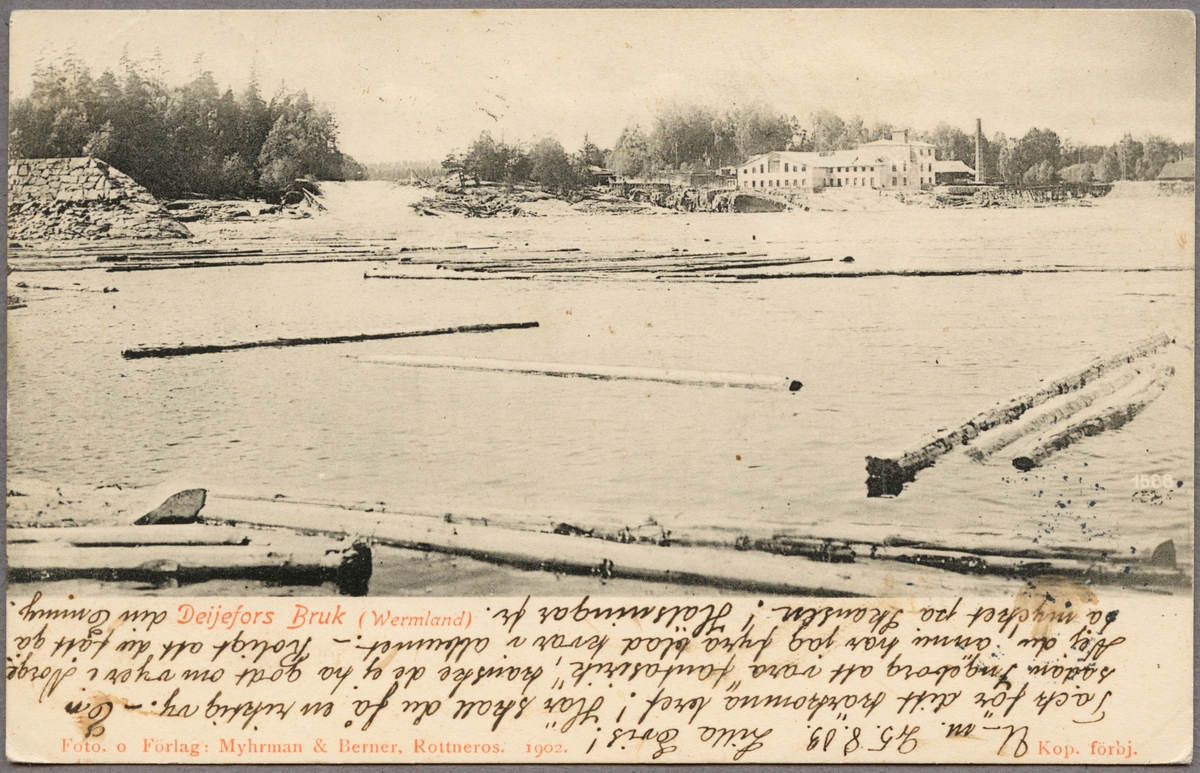 1566
Deijefors Bruk (Wermland)
Foto. o Förlag: Myhrman & Berner, Rottneros. 1902.
Kop. förbj.
U–m. 25.8.03 Lilla Evis!
Tack för ditt bref! Här skall du få en riktig vy. – En
sådan Ingeborg att vara "fantastisk", kanske de ej ha godt om vyer i Norge
Nej du ännu har jag fyra blad kvar i albumet. – Roligt att du fått gå
så mycket på Skansen! Hälsningar fr. din Emmy.